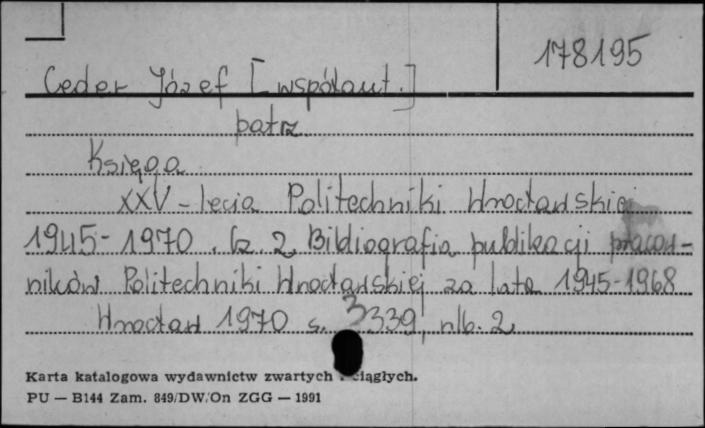 178195
Ceder Józef [współaut.]
patrz
Księga
XXV-lecia Politechniki Wrocławskiej
1945-1970. Cz. 2 Bibliografia publikacji pracow-
ników Politechniki Wrocławskiej za lata 1945-1968
Wrocław 1970 s. 339, nlb. 2
Karta katalogowa wydawnictw zwartych i ciągłych.
PU — B144 Zam. 849/DW/On ZGG — 1991